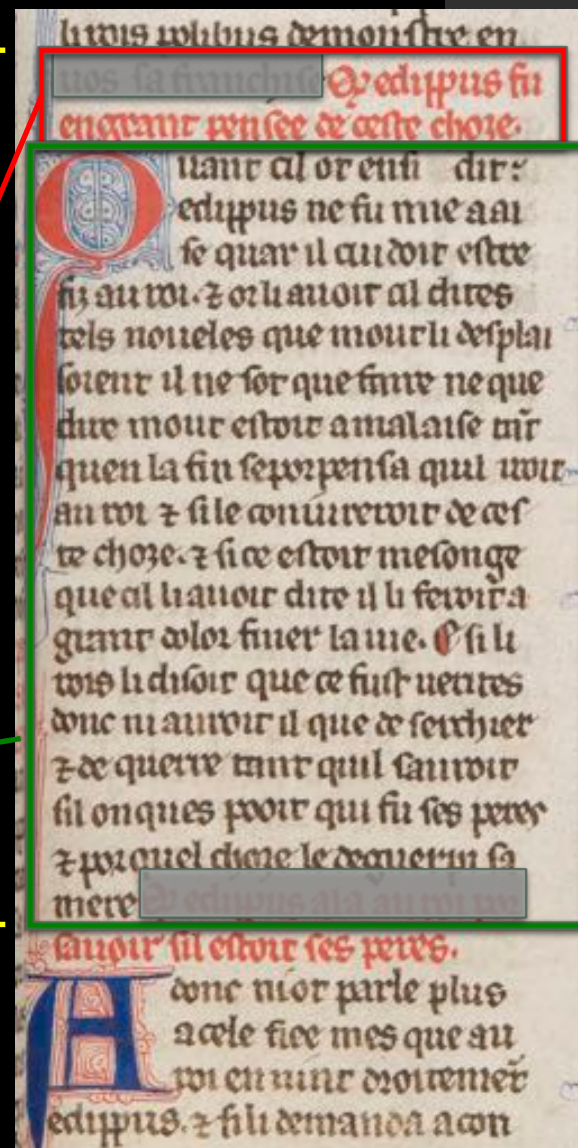 li rois polibus demonstre en
uos sa franchise Q edippus fu
en grant pensee de ceste choze.
Quant cil or ensi dit:
edippus ne fu mie aai
se quar il cuidoit estre
fiz au roi. ⁊ or li auoit cil dites
tels noueles que mout li desplai
soient il ne sot que faire ne que
dire mout estoit a malaise tãt
quen la fin se porpensa quil iroit
au roi ⁊ si le coniureroit de ces
te choze. ⁊ si ce estoit mesonge
que cil li auoit dite il li feroit a
grant dolor finer la uie. Et si li
rois li disoit que ce fust uerites
donc ni auroit il que de serchier
⁊ de querre tant quil sauroit
sil onques pooit qui fu ses peres
⁊ por quel choze le deguerpi sa
mere Q edippus ala au roi por
sauoir sil estoit ses peres.
A donc niot parle plus
a cele fiee mes que au
roi en uint droitemẽt
edippus. ⁊ si li demanda a con